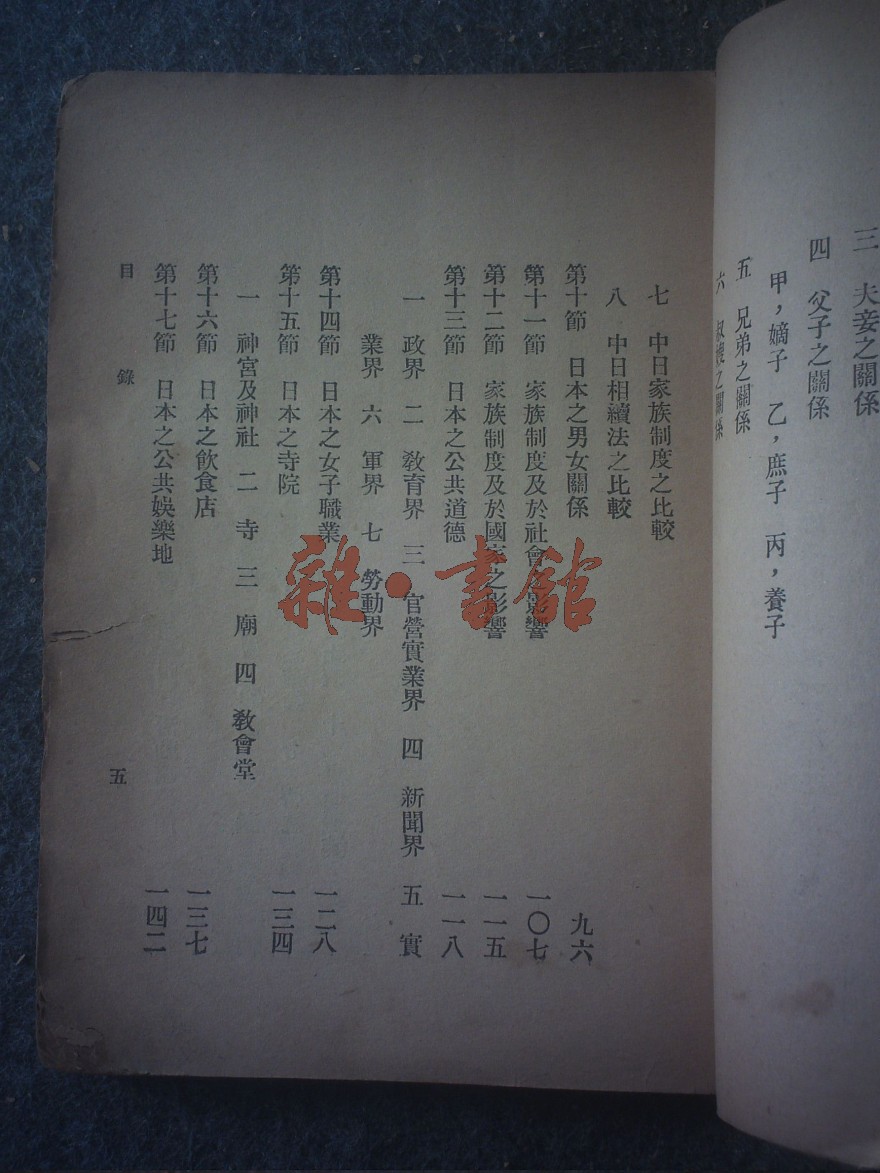 三　夫妾之關係
四　父子之關係
甲，嫡子　乙，庶子　丙，養子
五　兄弟之關係
六　叔嫂之關係
七　中日家族制度之比較
八　中日相續法之比較
第十節　日本之男女關係　九六
第十一節　家族制度及於社會之影響　一〇七
第十二節　家族制度及於國家之影響　一一五
第十三節　日本之公共道德　一一八
一　政界　二　敎育界　三　官營實業界　四　新聞界　五　實
業界　六　軍界　七　勞動界
第十四節　日本之女子職業　一二八
第十五節　日本之寺院　一三四
一　神宮及神社　二　寺　三　廟　四　敎會堂
第十六節　日本之飲食店　一三七
第十七節　日本之公共娛樂地　一四二
目錄　五
雜·書館